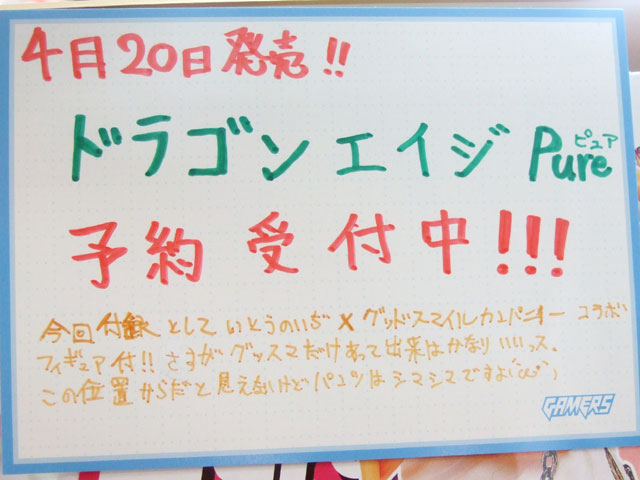 4月20日発売!!
ドラゴンエイジ Pure
ピュア
予約受付中!!!
今回付録としていとうのいぢ×グッドスマイルカンパニー コラボ
フィギュア付!! さすがグッスマだけあって出来はかなりいいっス、
この位置からだと見えないけどパンツはシマシマですよ
GAMERS